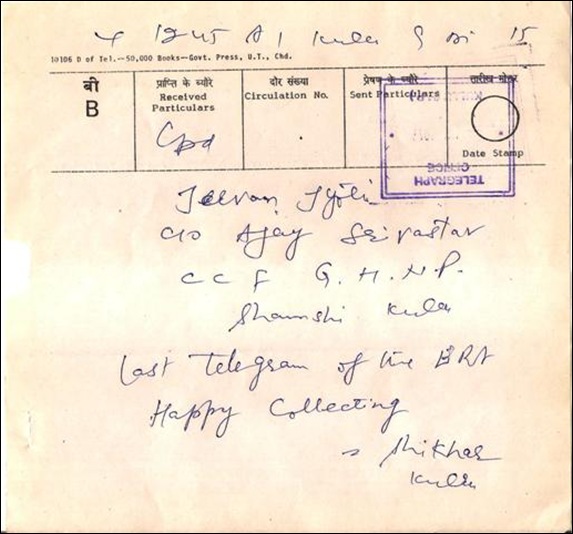 4 1245 A 1 Kullu 9 Di 15
10106 D of Tel.--50,000 Books--Govt. Press, U.T., Chd.
बी
B
प्राप्ति के ब्यौरे
Received
Particulars
दौर संख्या
Circulation No.
प्रेषण के ब्यौरे
Sent Particulars
तारीख मोहर
Date Stamp
TELEGRAPH
OFFICE
Cpd
Jeevan Jyoti
C/o Ajay Srivastav
C C F G.H.N.P.
Shamshi Kullu
Last Telegram of the ERA
Happy Collecting
Shikhar
Kullu